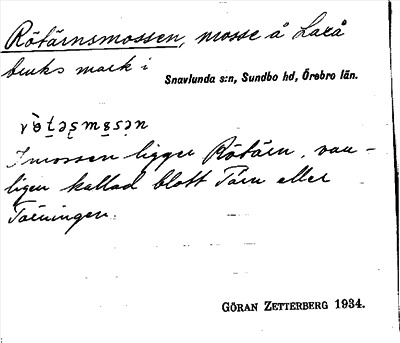 Rötärnsmossen, mosse å Laxå
bruks mark i
Snavlunda s:n, Sundbo hd, Örebro län.
I mossen ligger Rötärn, van-
ligen kallad blott Tärn eller
GÖRAN ZETTERBERG 1934.